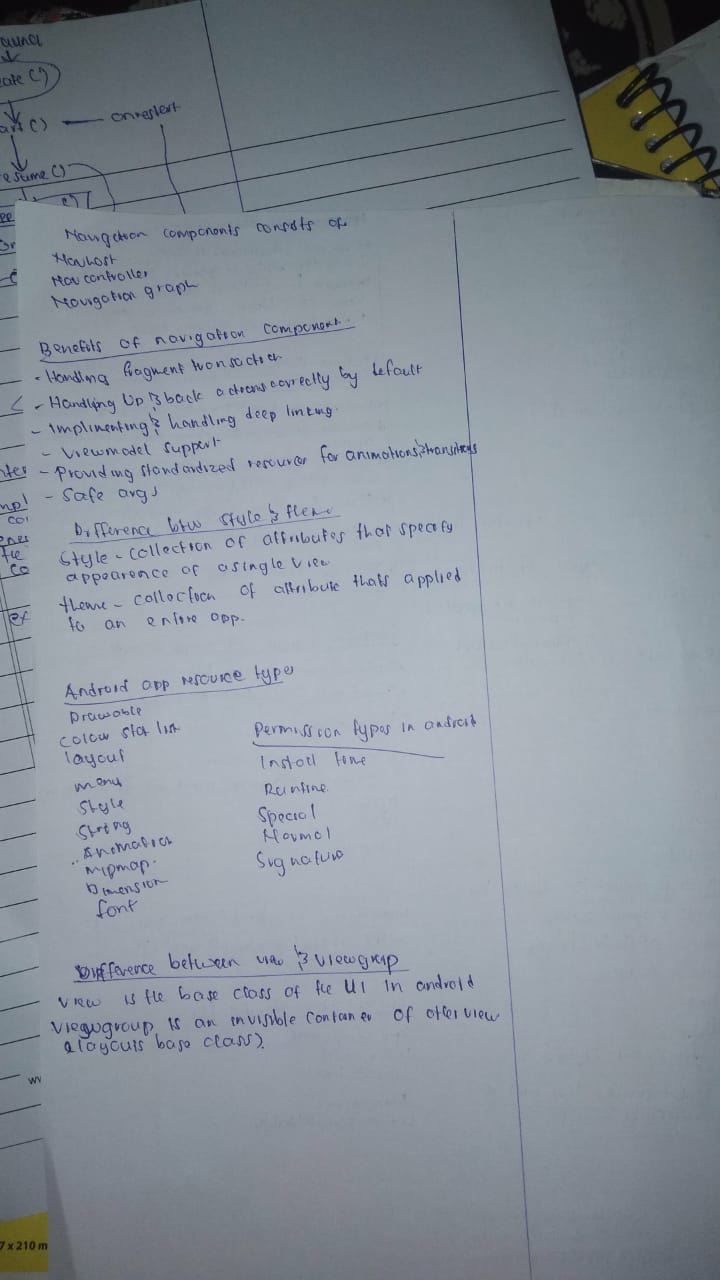 aunch
eate ()
art () — onrestart
resume ()
Navigation components consists of
Navhost
Nav controller
Navigation graph
Benefits of navigation component.
- Handling fragment transaction
- Handling Up & back actions correctly by default
- Implimenting & handling deep linking.
- Viewmodel support
- Providing standardized resources for animations & transitions
- Safe args
Difference btw style & theme
Style - collection of attributes that specify
appearence of a single view
theme - collection of attribute thats applied
to an entire app.
Android app resource types
Drawable
Colour stat list
layout
menu
Style
String
Animation
Mipmap.
Dimension
font
Permission types in android
Install time
Runtime
Special
Normal
Signature
Difference between view & viewgroup
View is the base class of the UI in android
Viewgroup is an invisible container of other view
(layouts base class).
7 x 210 m